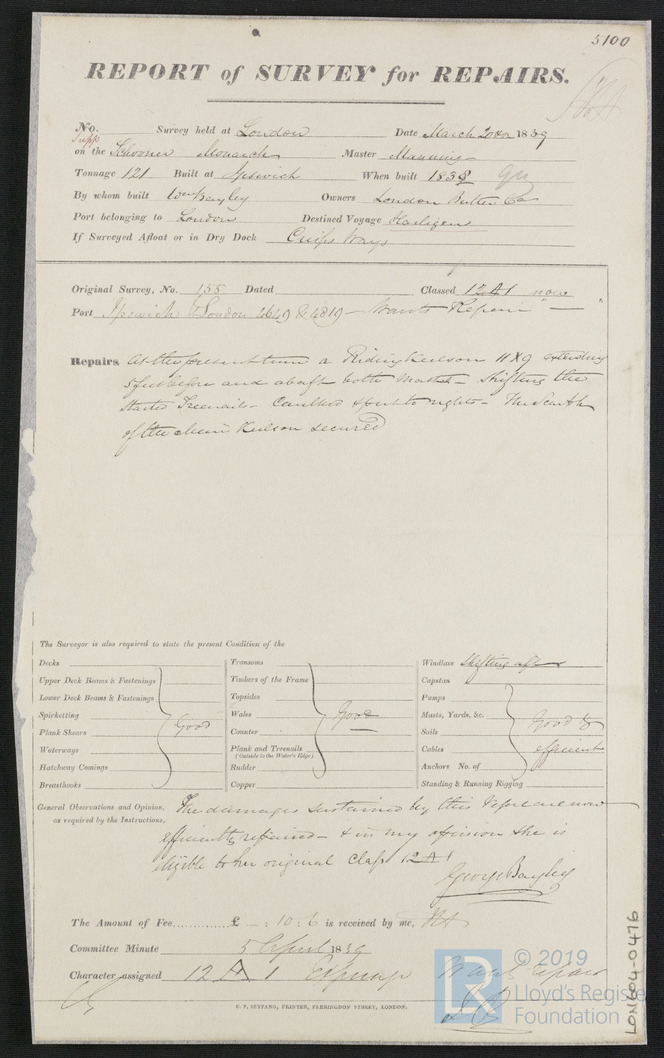 5100
REPORT of SURVEY for REPAIRS.
No. Survey held at London Date March 1839
on the Schooner Monarch Master Manning
Tonnage 121 Built at Ipswich When built 1838
By whom built Wm Bayley Owners London Butter Co
Port belonging to London Destined Voyage Harligen
If Surveyed Afloat or in Dry Dock Crisps Ways
Original Survey, No. 155 Dated Classed 12 A 1 now
Port Ipswich & London 4649 & 4819 - Wants Repair -
Repairs At the present time a Riding Keelson 11 x 9 extending
5 feet before and abaft both Masts - Shifting the
Started Treenails - Caulked & put to rights - The Scarph
of the Main Keelson secured
The Surveyor is also required to state the present Condition of the
Decks
Upper Deck Beams & Fastenings
Lower Deck Beams & Fastenings
Spirketting
Plank Shears
Waterways
Hatchway Comings
Breasthooks
Good
Transoms
Timbers of the Frame
Topsides
Wales
Counter
Plank and Treenails
(Outside to the Water's Edge)
Rudder
Copper
Good
Windlass Shifting aft
Capstan
Pumps
Masts, Yards, &c.
Sails
Cables
Anchors No. of
Standing & Running Rigging
Good &
efficient
General Observations and Opinion, The damages sustained by this Vessel are now
as required by the Instructions,
efficiently repaired - & in my opinion she is
eligible to her original Class 12 A 1
George Bayley
The Amount of Fee.............. £ - : 10 : 6 is received by me,
Committee Minute 5 April 1839
Character assigned 12 A 1 Expunge Wants Repair
C. F. SEYFANG, PRINTER, FARRINGDON STREET, LONDON.
LON604-0476
LR
© 2019
Lloyd's Register
Foundation